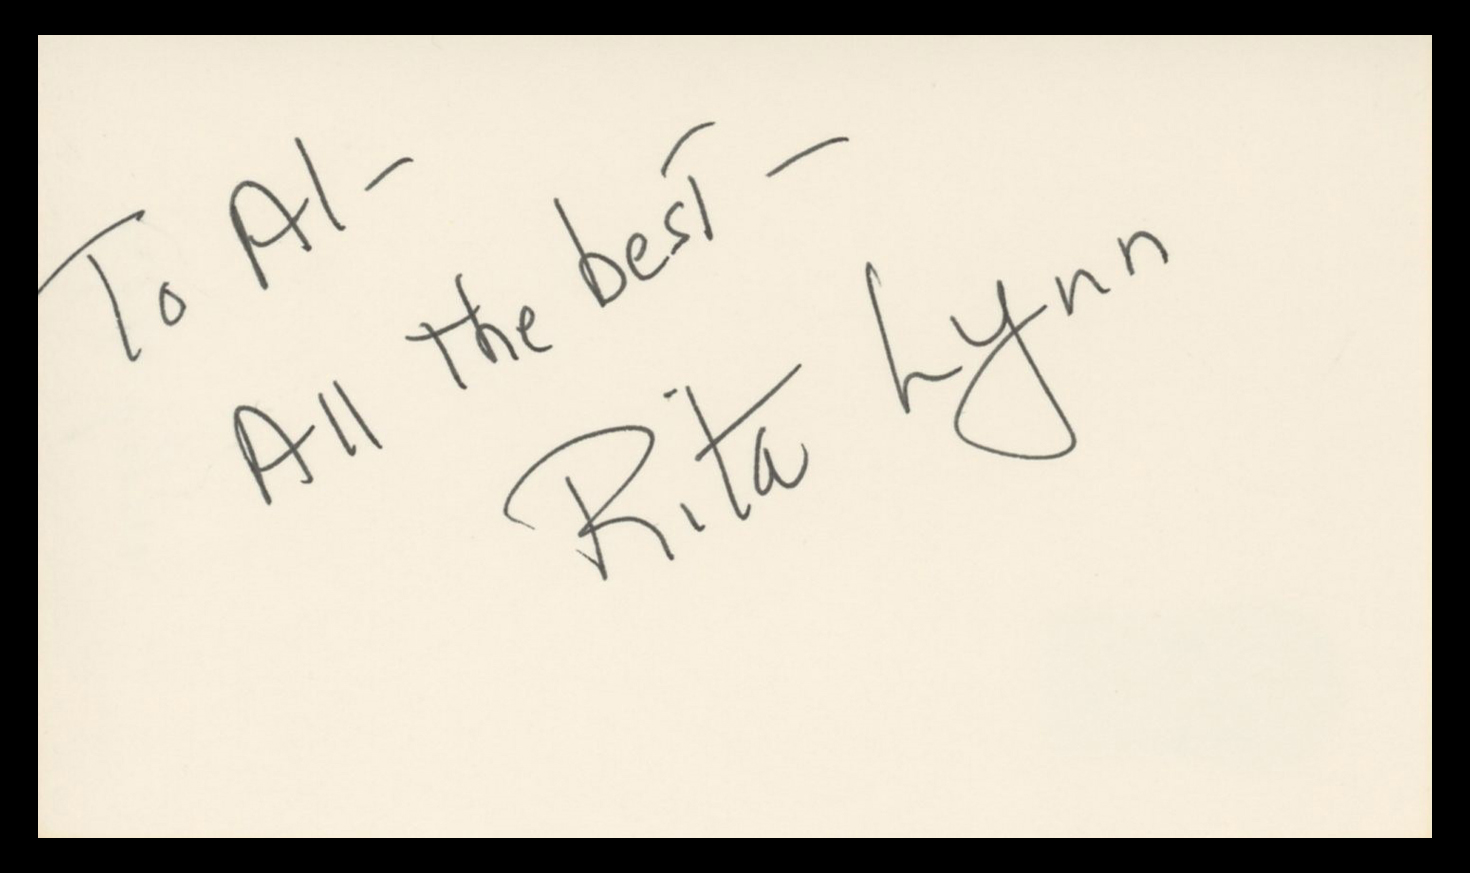 To Al-
All the best-
Rita Lynn